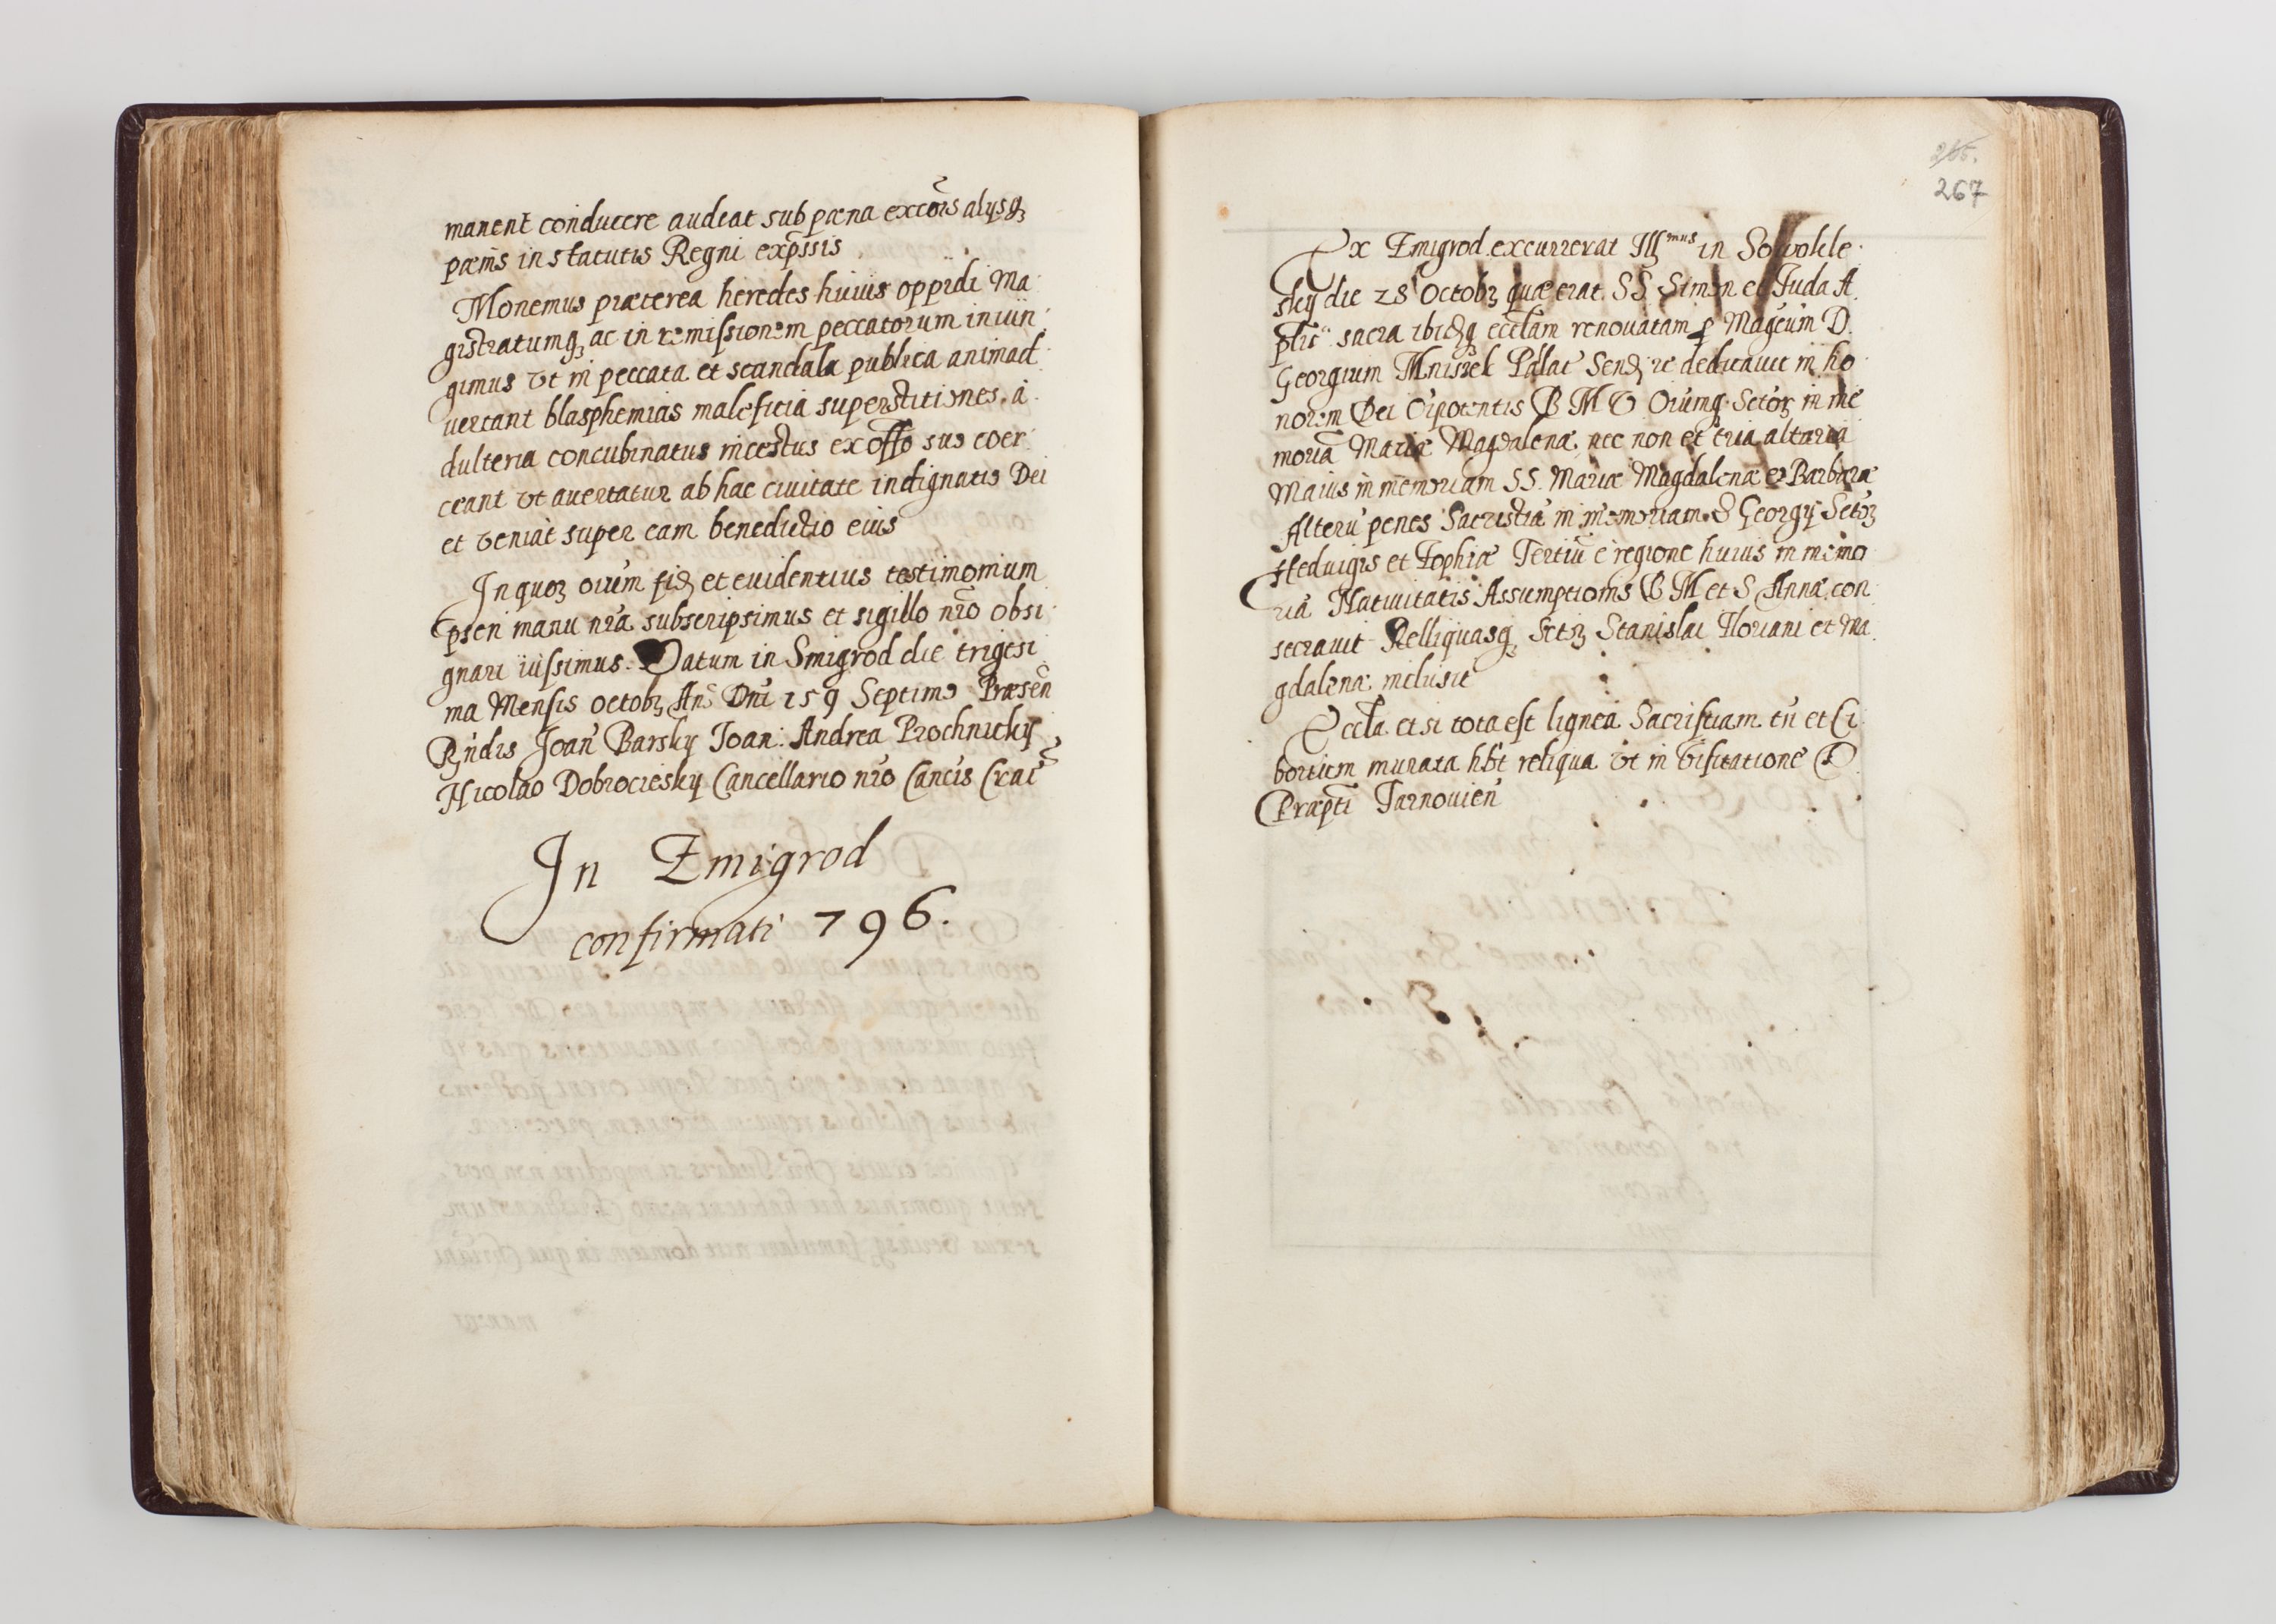 manent conducere audeat sub pœna excōis alijsq3
pœnis in statutis Regni exp̄ssis
Monemus præterea heredes huius oppidi Ma
gistratumq3 ac in remissionem peccatorum iniun
gimus vt in peccata et scandala publica animad
uertant blasphemias maleficia superstitiones, a
dulteria concubinatus incestus ex offo suo coer
ceant vt auertatur ab hac ciuitate indignatio Dei
et veniat super eam benedictio eius
In quor oīum fid et euidentius testimonium
psen manu nrā subscripsimus et sigillo nrō obsi
gnari iussimus. Datum in Smigrod die trigesi
ma Mensis octobr An̄o Dnī 159 Septimo Præsen̄
Rndis Joan̄ Barsky Joan: Andrea Prochnicky
Nicolao Dobrociesky Cancellario nrō Cancis Crac̄
In Zmigrod
confirmati 796.
265.
267
Ex Zmigrod excurrerat Ill^mus in Sowokle
sky die 28 Octobr quæ erat SS. Simon et Juda A
plis sacra ibidq ecclām renouatam p Magcum D.
Georgium Mniszek Pallat Send rc dedicauit in ho
norem Dei Oīpotentis B M V Oīumq Sctor in me
moriā Mariæ Magdalenæ, nec non et tria altaria
Maius in memoriam SS. Mariæ Magdalenæ et Barbaræ
Alterū penes Sacristiā in memoriam S Georgij Sctor
Heduigis et Zophiæ Tertiū e regione huius in memo
riā Natiuitatis Assumptionis B M et S Annæ con
secrauit Relliquasq3 Sctor Stanislai Floriani et Ma
gdalenæ inclusit
Eccla et si tota est lignea Sacristiam tn̄ et Ci
borium murata hbt reliqua vt in visitatione D
Præpti Tarnouien̄